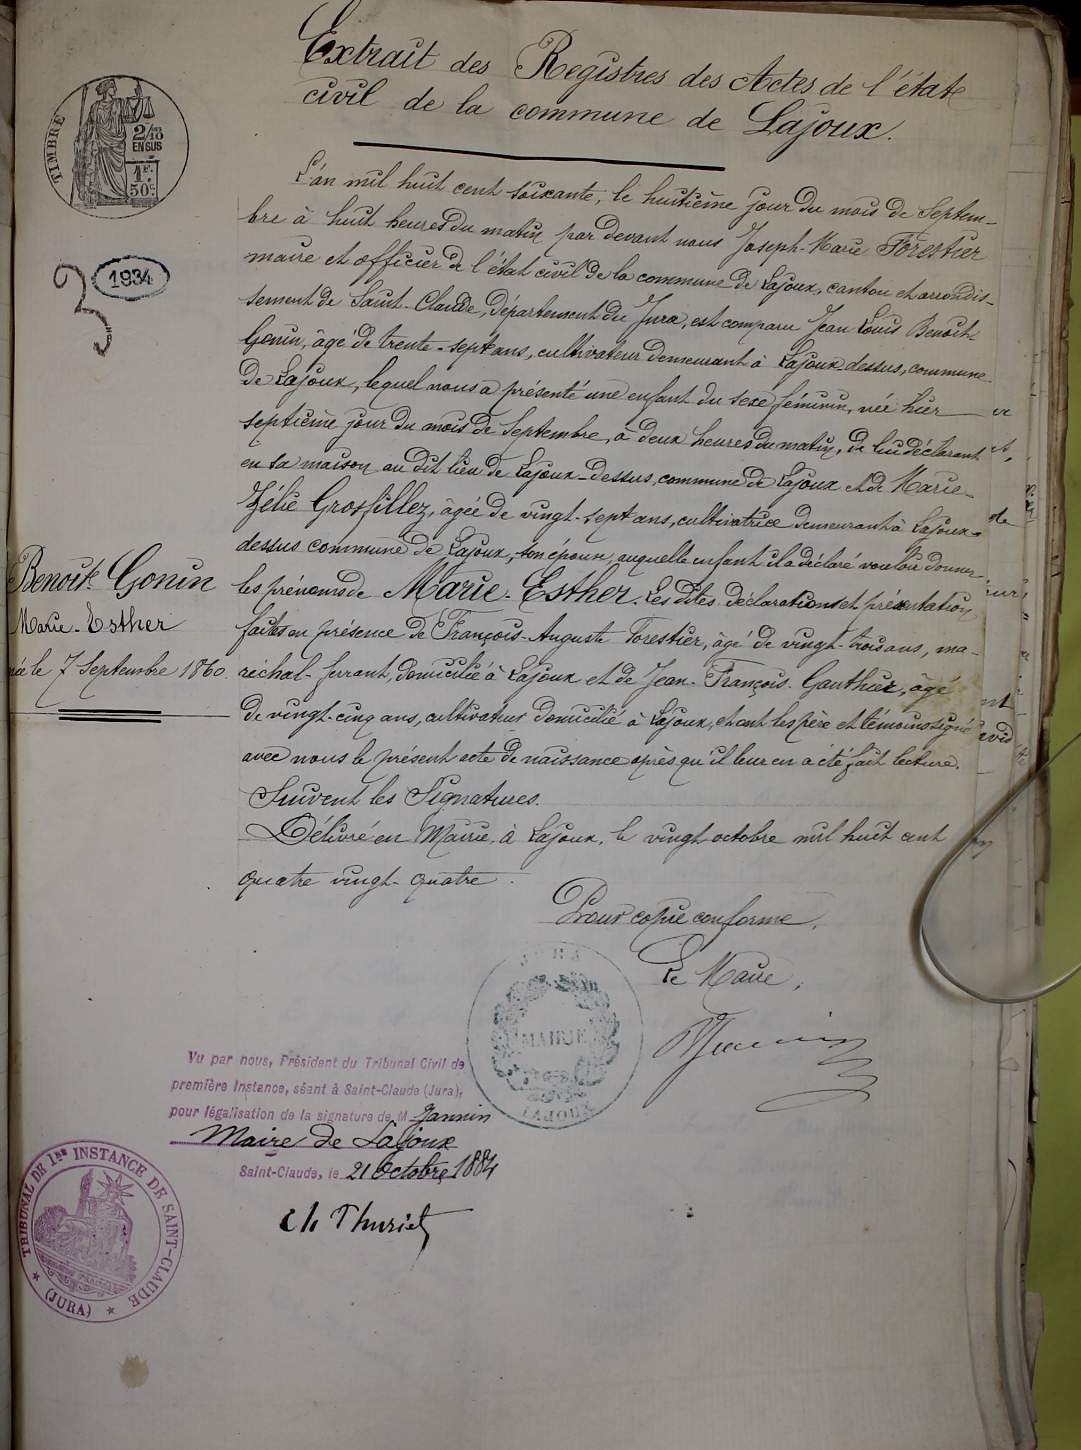 Extrait des Registres des Actes de l'état
civil de la commune de Lajoux.
TIMBRE
2/10
EN SUS
1F.
50c.
1934
L'an mil huit cent soixante, le huitième jour du mois de Septem-
bre à huit heures du matin par devant nous Joseph-Marie Forestier
maire et officier de l'état civil de la commune de Lajoux, canton et arrondis-
sement de Saint-Claude, Département du Jura, est comparu Jean Louis Benoit-
Gonin, âgé de trente-sept ans, cultivateur demeurant à Lajoux-dessus, commune
de Lajoux, lequel nous a présenté une enfant du sexe féminin, née hier
septième jour du mois de Septembre, à deux heures du matin, de lui déclarant
en sa maison au dit lieu de Lajoux-dessus, commune de Lajoux et de Marie-
Zélie Grosfillez, âgée de vingt-sept ans, cultivatrice demeurant à Lajoux-
dessus commune de Lajoux, son épouse, auquelle enfant il a déclaré vouloir donner
les prénoms de Marie-Esther. Les dites déclarations et présentation
faites en présence de François-Auguste Forestier, âgé de vingt-trois ans, ma-
réchal-ferrant, domicilié à Lajoux et de Jean-François Gauthier, âgé
de vingt-cinq ans, cultivateur domicilié à Lajoux, et ont les père et témoins signé
avec nous le présent acte de naissance après qu'il leur en a été fait lecture.
Suivent les Signatures.
Benoit-Gonin
Marie-Esther
née le 7 Septembre 1860.
Délivré en Mairie, à Lajoux, le vingt octobre mil huit cent
quatre vingt-quatre.
Pour copie conforme,
Le Maire,
JURA
MAIRIE
LAJOUX
Vu par nous, Président du Tribunal Civil de
première Instance, séant à Saint-Claude (Jura),
pour légalisation de la signature de M Jannin
Maire de Lajoux
Saint-Claude, le 21 Octobre 1884
Ch Thuriet
TRIBUNAL DE 1re INSTANCE DE SAINT-CLAUDE
(JURA)